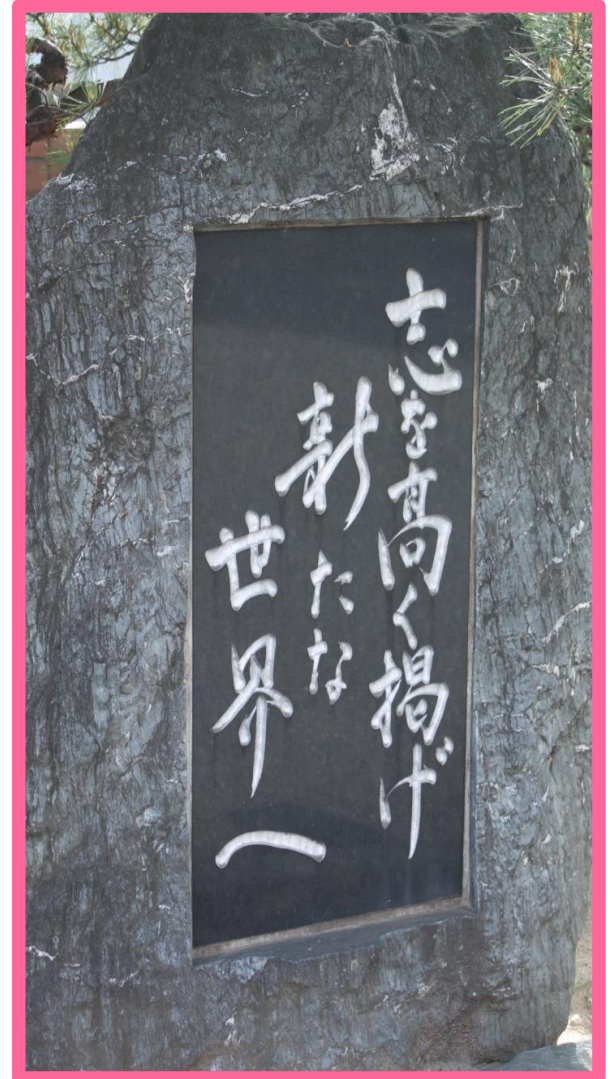 志を高く掲げ
新たな
世界へ